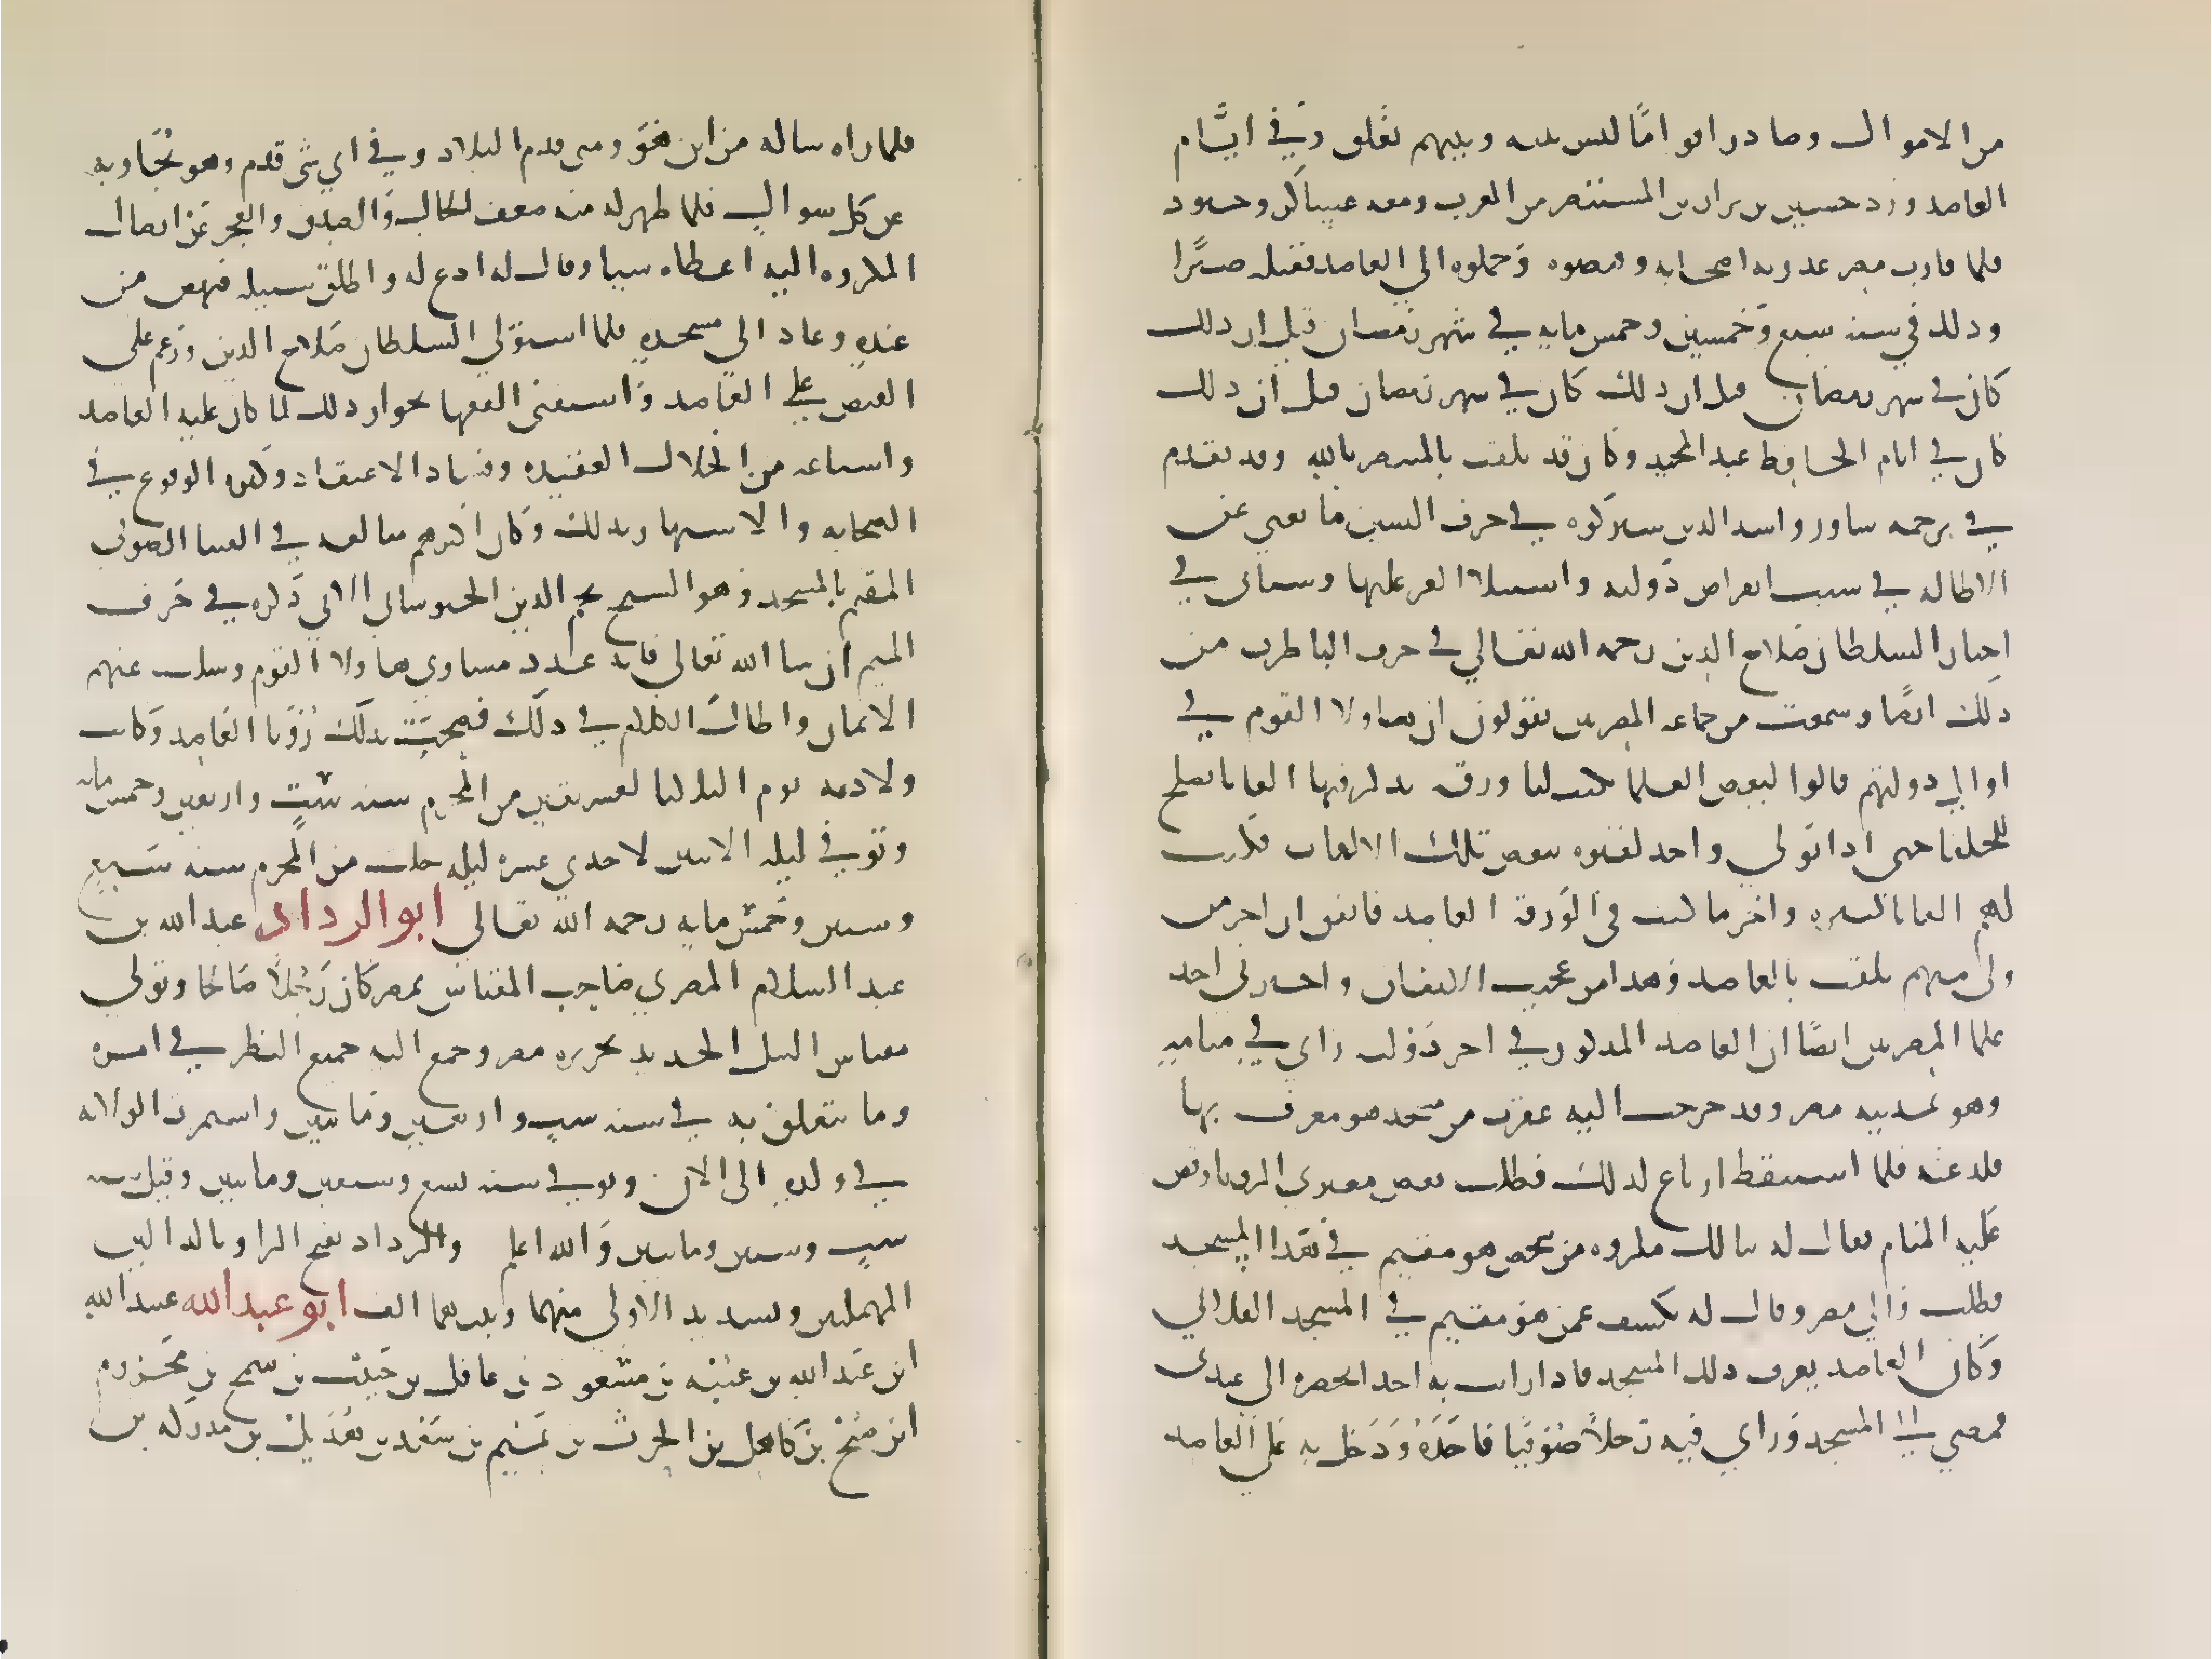 من الاموال وصادر اقواما ليس بينه وبينهم تعلق وفي ايام
العاضد ورد حسين بن نزار بن المستنصر من المغرب ومعه عساكر وحشود
فلما قارب مصر غدر به اصحابه وقبضوه وحملوه الي العاضد فقتله صبرًا
وذلك في سنه سبع وخمسين وخمس مايه في شهر رمضان قبل ان ذلك
كان في شهر رمضان قيل ان ذلك كان في شهر رمضان قيل ان ذلك
كان في ايام الحافظ عبد المجيد وكان قد تلقب بالمنتصر بالله وقد تقدم
في ترجمه شاور واسد الدين شيركوه في حرف الشين ما يغني عن
الاطاله في سبب انقراض دولته واستيلا الغز عليها وسياتي في
اخبار السلطان صلاح الدين رحمه الله تعالي في حرف اليا طرف من
ذلك ايضًا وسمعت من جماعه المصريين يقولون ان هاولا القوم في
اوايل دولتهم قالوا لبعض العلما تكتب لنا ورقه تذكر فيها القابا تصلح
للخلفا حتى اذا تولي واحد لقبوه ببعض تلك الالقاب فكتب
لهم القابا كثيره واخر ما كتب في الورقه العاضد فاتفق ان اخر من
ولي منهم تلقب بالعاضد وهذا من عجيب الاتفاق واخبرني احد
علما المصريين ايضًا ان العاضد المذكور في اخر دولته راي في منامه
وهو بمدينه مصر وقد خرجت اليه عقرب من مسجد هو معرف بها
فلدغته فلما استيقظ ارتاع لذلك فطلب بعض معبري الرويا وقص
عليه المنام فقال له ينالك مكروه من شخص هو مقيم في هذا المسجد
فطلب والي مصر وقال له تكشف عمن هو مقيم في المسجد الفلاني
وكان العاضد يعرف ذلك المسجد فاذا رايت به احدا تحضره الى عندي
فمضي الي المسجد وراي فيه رجلاً صوفيًا فاخذه ودخل به علي العاضد
فلما راه ساله من اين هو ومتى قدم البلاد وفي اي شي قدم وهو يجاوبه
عن كل سوال فلما ظهر له منه ضعف الحال والصدق والعجز عن ايصال
المكروه اليه اعطاه شيا وقال له ادع لنا واطلق سبيله فنهض من
عنده وعاد الي مسجده فلما استولي السلطان صلاح الدين وزعم علي
القبض علي العاضد واستفتى الفقها بجواز ذلك لما كان عليه العاضد
واشياعه من انحلال العقيده وفساد الاعتقاد وكثره الوقوع في
الصحابه والاستهتار بذلك وكان اكثرهم مبالغه في الفتيا الصوفي
المقيم بالمسجد وهو الشيخ نجم الدين الخبوشاني الاتي ذكره في حرف
الميم ان شا الله تعالي فانه عدد مساوي هاولا القوم وسلب عنهم
الايمان واطال الكلام في ذلك فصحت بذلك رويا العاضد وكانت
ولادته يوم الثلاثا لعشر بقين من المحرم سنه ست واربعين وخمس مايه
وتوفي ليله الاثنين لاحدي عشره ليله خلت من المحرم سنه سبع
وستين وخمس مايه رحمه الله تعالي ابو الرداد عبد الله بن
عبد السلام المصري صاحب المقياس بمصر كان رجلاً صالحا وتولي
مقياس النيل الجديد بجزيره مصر وجمع اليه جميع النظر في امره
وما يتعلق به في سنه ست واربعين ومايتين واستمرت الولايه
في ولده الى الان وتوفي سنه تسع وسبعين ومايتين وقيل سنه
ست وستين ومايتين والله اعلم والرداد بفتح الرا وبالدالين
المهملتين وتشديد الاولي منهما وبينهما الف ابو عبد الله عبيد الله
ابن عبد الله بن عتبه بن مسعود بن عاقل بن حبيب بن شمخ بن مخزوم
ابن صبح بن كاهل بن الحرث بن تميم بن سعد بن هذيل بن مدركه بن